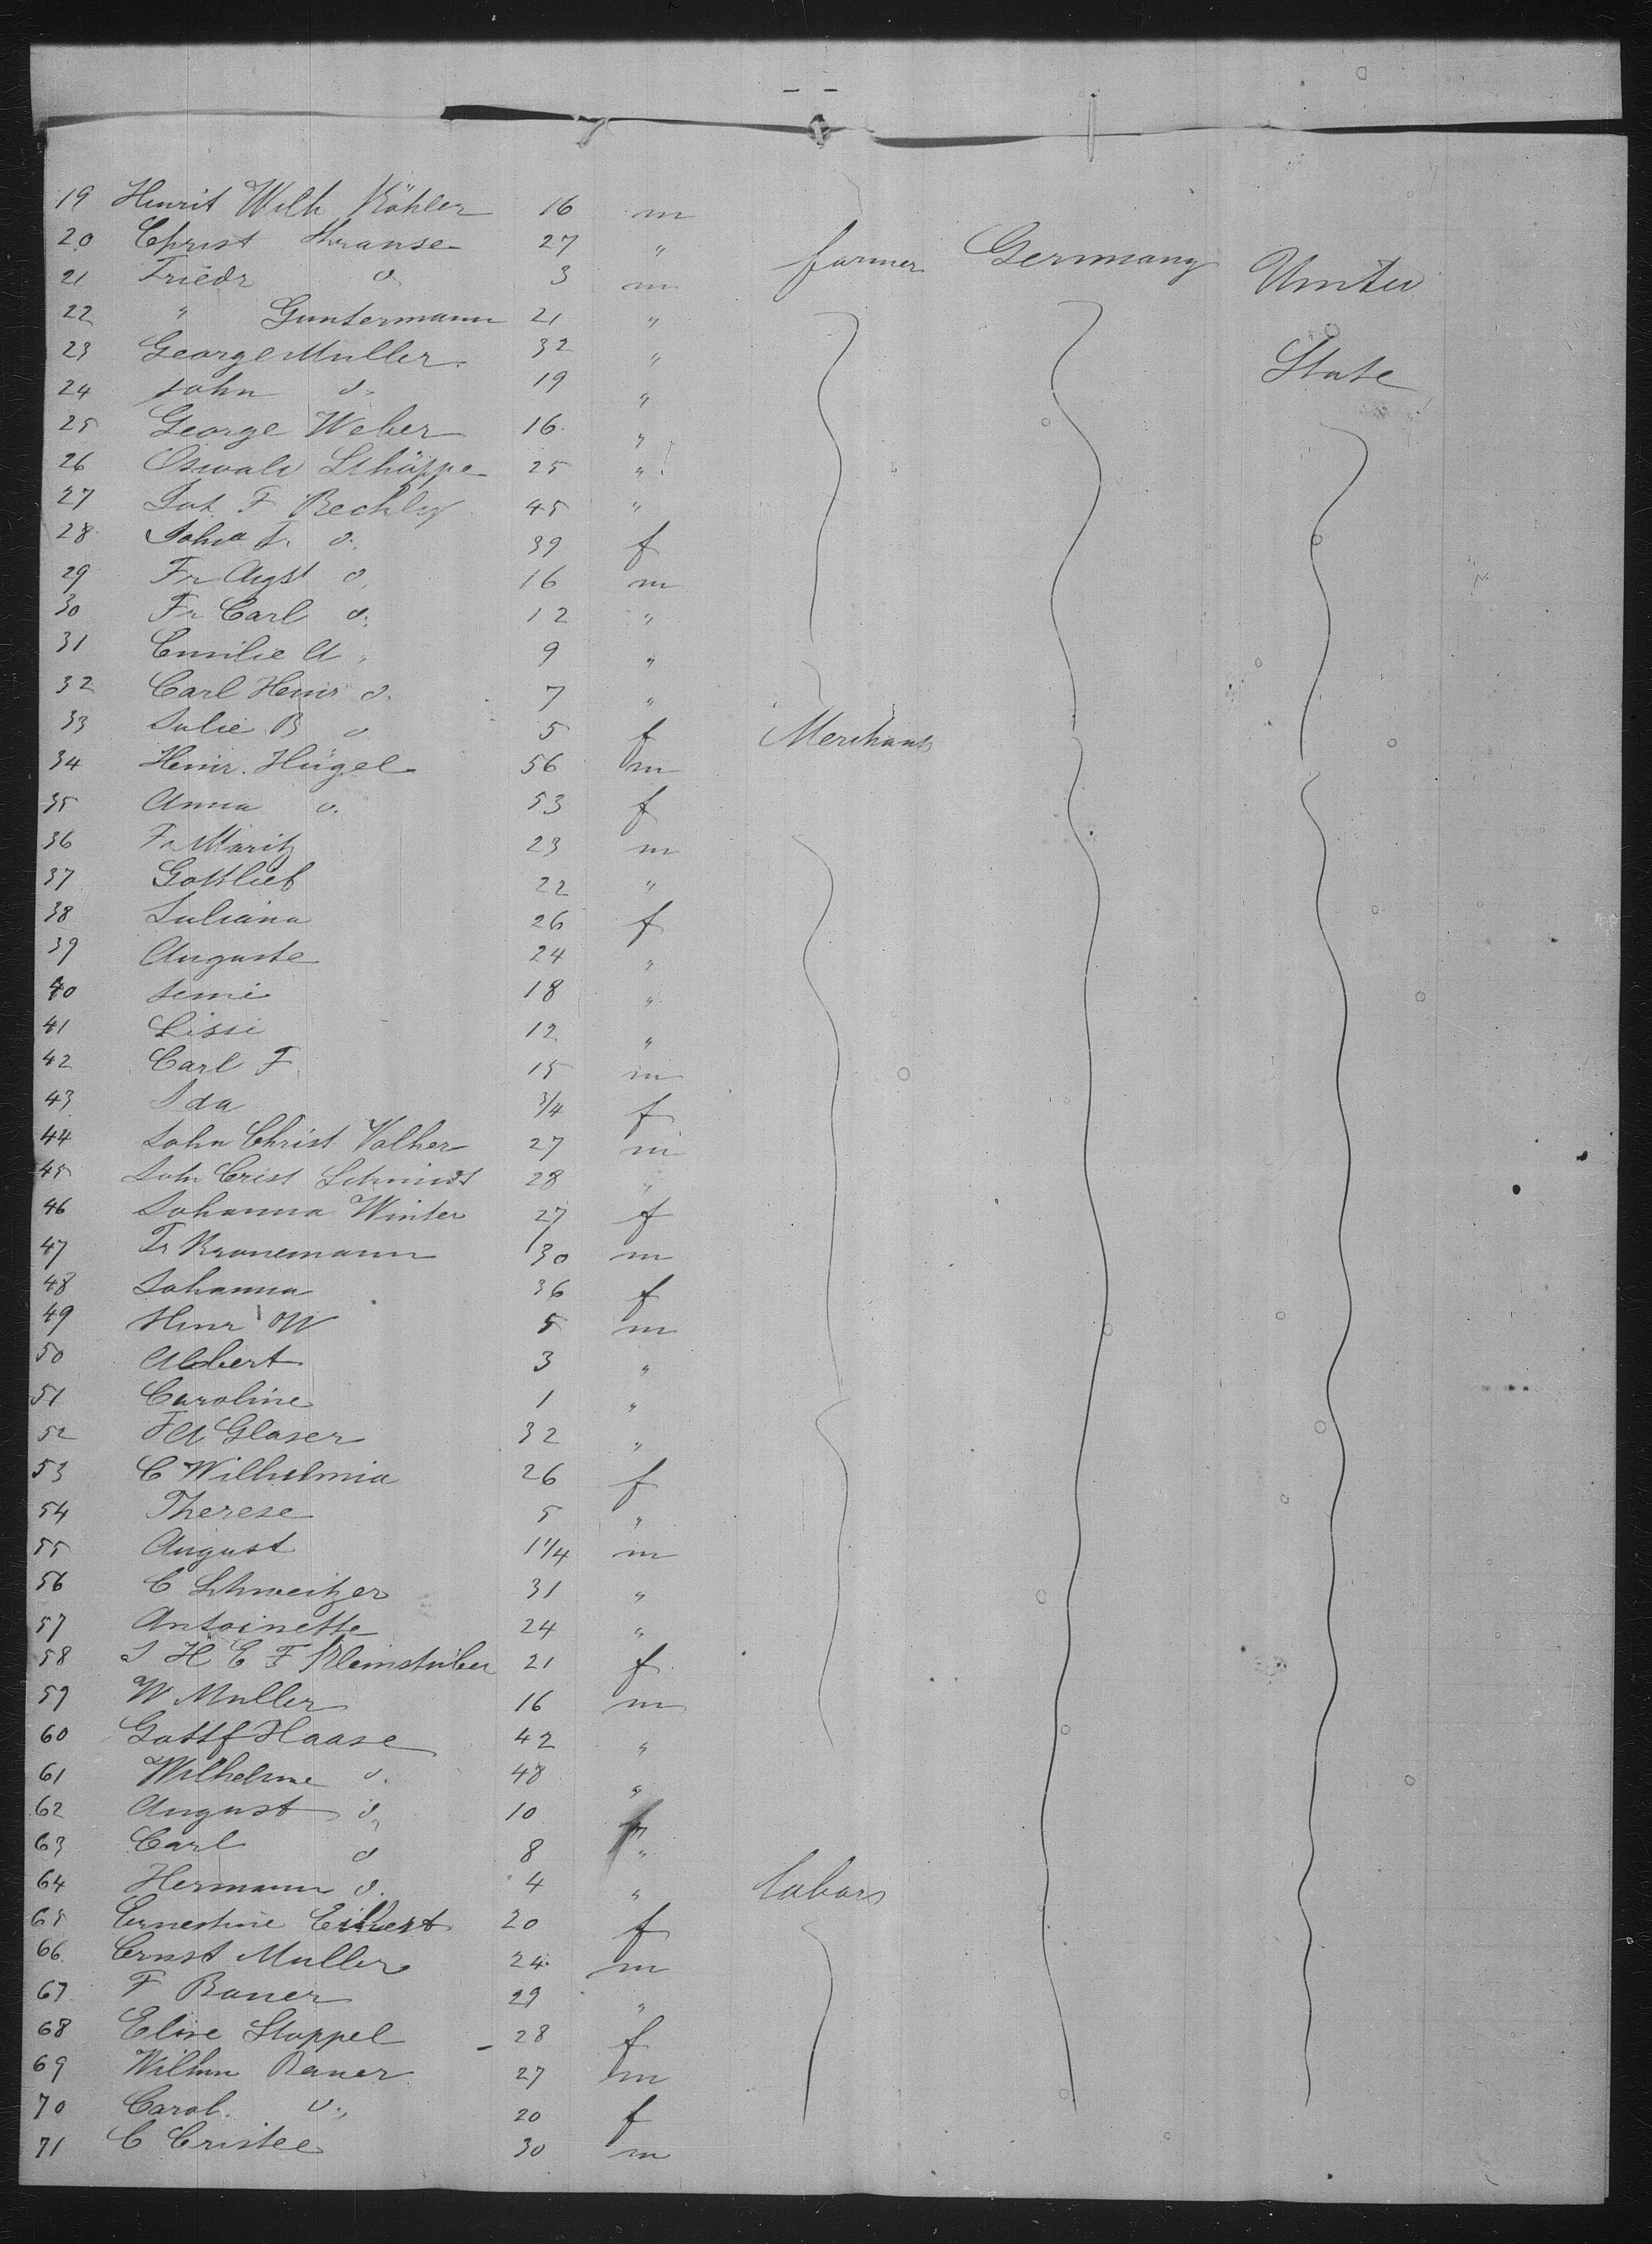 19 Henrit Wilh Köhler 16 m
20 Christ Kranse 27 " farmer Germany Unitu
21 Friedr d 3 m
22 " Guntermann 21 "
23 George Muller 32 " State
24 John d 19 "
25 George Weber 16 "
26 Oswald Schüppe 25 "
27 F Bechly 45 "
28 d 39 f
29 Fr Augst d 16 m
30 Fr Carl d 12 "
31 Emilie A " 9 "
32 Carl Heinr d 7 "
33 Julie B d 5 f Merchant
34 Heinr. Hügel 56 m
35 Anna d. 53 f
36 Fr Moritz 23 m
37 Gottlieb 22 "
38 Juliana 26 f
39 Auguste 24 "
40 18 "
41 Lissi 12 "
42 Carl F 15 m
43 Ida 3/4 f
44 John Christ Valher 27 m
45 Joh Crist Schmidt 28 "
46 Johanna Winter 27 f
47 Fr Kronemann 30 m
48 Johanna 36 f
49 Henr W 5 m
50 Albert 3 "
51 Caroline 1 "
52 F A Glaser 32 "
53 C Wilhelmia 26 f
54 Therese 5 "
55 August 1 1/4 m
56 C Schweitzer 31 "
57 Antoinette 24 "
58 J H E F Kleinstuber 21 f
59 W Muller 16 m
60 Gottf Haase 42 "
61 Wilhelme d. 48 "
62 August d 10
63 Carl d 8 "
64 Hermann d. 4 " Labors
65 Ernestine Eilbert 20 f
66 Ernst Muller 24 m
67 F Bauer 29 "
68 Elise Stoppel 28 f
69 Wilhm Bauer 27 m
70 Carol. d. 20 f
71 C Cristee 30 m